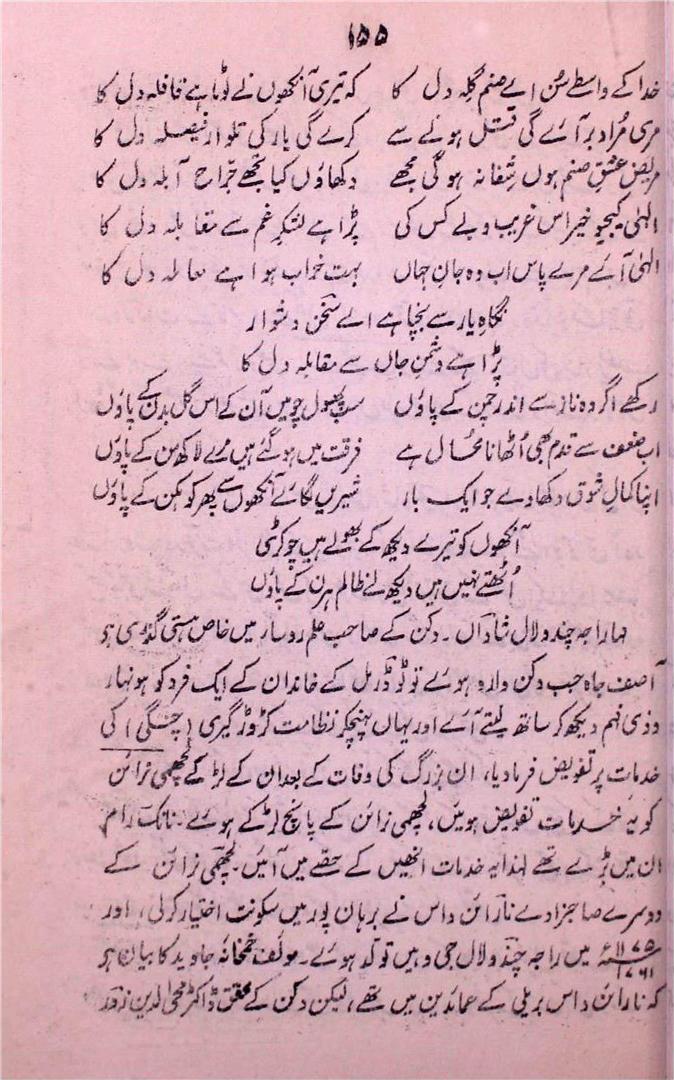 ۱۵۵
خدا کے واسطے سُن اے صنم گِلہ دل کا کہ تیری آنکھوں نے لوٹا ہے قافلہ دل کا
مری مُراد بر آئے گی قتل ہونے سے کرے گی یار کی تلوار فیصلہ دل کا
مریض عشقِ صنم ہوں شِفا نہ ہوگی مجھے دکھاؤں کیا تجھے جرّاح آبلہ دل کا
الہٰی کیجیو خیر اس غریب و بے کس کی پڑا ہے لشکرِ غم سے مقابلہ دل کا
الہٰی آئے مرے پاس اب وہ جانِ جہاں بہت خراب ہوا ہے معاملہ دل کا
نگاہِ یار سے بچپا ہے اے سخن دشوار
پڑا ہے دشمنِ جاں سے مقابلہ دل کا
رکھے اگر وہ ناز سے اندر چمن کے پاؤں سب پھول چومیں آن کے اس گل بدن کے پاؤں
اب ضعف سے قدم بھی اُٹھانا مُحال ہے فرقت میں ہو گئے ہیں مرے لاکھ من کے پاؤں
اپنا کمالِ شوق دکھا دے جو ایک بار شیریں لگائے آنکھوں سے پھر کوہکن کے پاؤں
آنکھوں کو تیرے دیکھ کے بھولے ہیں چوکڑی
اُٹھتے نہیں ہیں دیکھ لے ظالم ہرن کے پاؤں
مہاراجہ چندولال شاداں ۔ دکن کے صاحب علم روسار میں خاص ہستی گذری ہو
آصف جاہ جب دکن وارد ہوئے تو ٹوڈرمل کے خاندان کے ایک فرد کو ہونہار
و ذی فہم دیکھ کر ساتھ لیتے آئے اور یہاں پہنچکر نظامت کڑوڑ گیری (چنگی) کی
خدمات پر تفویض فرما دیا، ان بزرگ کی وفات کے بعد ان کے لڑکے لچھمی نرائن
کو یہ خدمات تفویض ہوئیں، لچھمی نرائن کے پانچ لڑکے ہوئے۔ نانک رام
ان میں بڑے تھے لہٰذا یہ خدمات انھیں کے حصّے میں آئیں۔ لچھمی نرائن کے
دوسرے صاحبزادے نارائن داس نے برہان پور میں سکونت اختیار کر لی، اور
۱۱۷۵ھ ۱۷۶۱ء میں راجہ چندولال جی وہیں تولد ہوئے۔ مولف خمخانہ جاوید کا بیان ہو
کہ نارائن داس بریلی کے عمائدین میں تھے، لیکن دکن کے محقق ڈاکٹر محی الدین زور